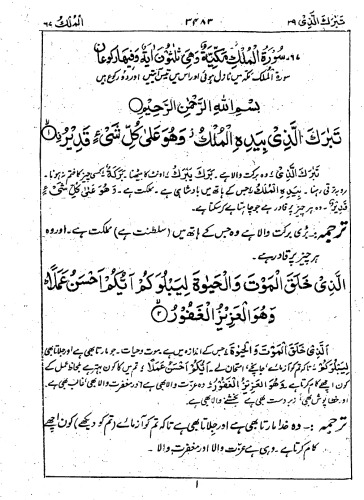 تبٰرک الذی ۲۹ ۳۴۸۳ الملک ۶۷
۶۷۔ سُوْرَةُ الْمُلْكِ مَكِّيَّةٌ وَّهِيَ ثَلٰثُوْنَ اٰيَةً وَّفِيْهَا رُكُوْعَانِ
سورۃ الملک مکہ میں نازل ہوئی اور اس میں تیس آیتیں اور دو رکوع ہیں
بِسْمِ اللّٰهِ الرَّحْمٰنِ الرَّحِيْمِ
تَبٰرَكَ الَّذِيْ بِيَدِهِ الْمُلْكُ وَهُوَ عَلٰى كُلِّ شَيْءٍ قَدِيْرُ ۝۱
تَبٰرَكَ الَّذِيْ: وہ برکت والا ہے۔
بِيَدِهِ الْمُلْكُ: جس کے ہاتھ میں بادشاہی ہے۔ مملکت ہے۔ وَهُوَ عَلٰى كُلِّ شَيْءٍ
قَدِيْرُ: وہ ہر چیز پر قادر ہے جو چاہتا ہے کر سکتا ہے۔
ترجمہ:۔ بڑی برکت والا ہے وہ جس کے ہاتھ میں (سلطنت ہے) مملکت ہے۔ اور وہ
ہر چیز پر قادر ہے۔
الَّذِيْ خَلَقَ الْمَوْتَ وَالْحَيٰوةَ لِيَبْلُوَكُمْ اَيُّكُمْ اَحْسَنُ عَمَلًا
وَهُوَ الْعَزِيْزُ الْغَفُوْرُ ۝۲
الَّذِيْ خَلَقَ الْمَوْتَ وَالْحَيٰوةَ: جس کے اندازہ میں ہے موت و حیات۔ جو مارتا بھی ہے اور جلاتا بھی ہے
لِيَبْلُوَكُمْ: تاکہ تم کو آزمائے، جانچے، امتحان لے۔ اَيُّكُمْ اَحْسَنُ عَمَلًا: تم میں کا کون بہتر ہے بلحاظ عمل کے
کون اچھے کام کرتا ہے۔ وَهُوَ الْعَزِيْزُ الْغَفُوْرُ: وہ عزت والا بھی ہے اور مغفرت والا بھی۔ غالب بھی ہے
اور خطا پوش بھی۔ زبردست بھی ہے بخشنے والا بھی۔
ترجمہ:۔ وہ خدا مارتا بھی ہے اور جلاتا بھی ہے تاکہ تم کو آزمائے (تم کو دیکھے) کون اچھے
کام کرتا ہے۔ وہی ہے عزت والا اور مغفرت والا۔
۱